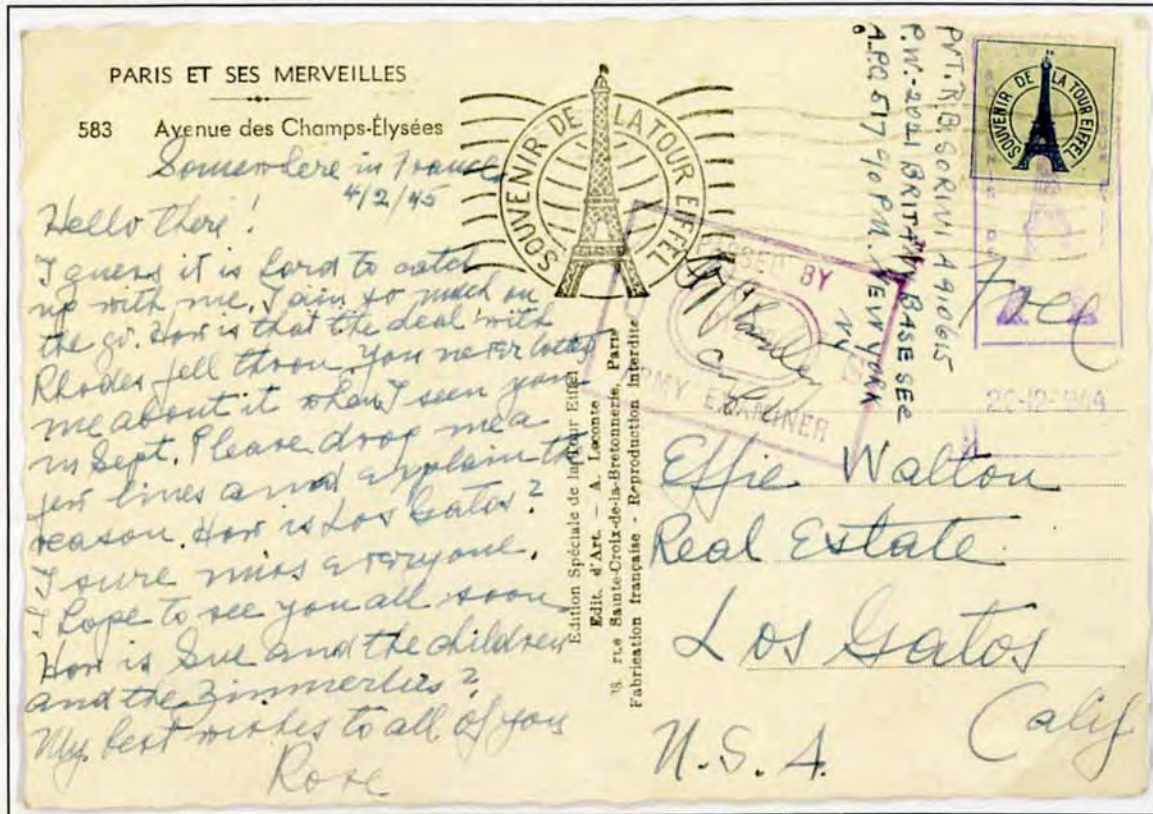 PARIS ET SES MERVEILLES
583 Avenue des Champs-Élysées
Somewhere in France
4/2/45
Hello there!
I guess it is hard to catch
up with me. I am so much on
the go. How is that the deal with
Rhodes fell throu. You never
me about it when I seen you
in Sept. Please drop me a
few lines and explain the
reason. How is Los Gatos?
I sure miss everyone.
I hope to see you all soon
How is Sue and the children
and the Zimmerlies?
My best wishes to all of you
Rose
SOUVENIR DE LA TOUR EIFFEL
PASSED BY
ARMY EXAMINER
Edition Spéciale de la Tour Eiffel
Edit. d'Art. – A. Leconte
18 rue Sainte-Croix-de-la-Bretonnerie, Paris
Fabrication française - Reproduction interdite
PVT. R.B. SORINI A910615
P.W.-2021 BRITANY BASE SEC
A.P.O. 517 c/o P.M. NEW YORK
NY
SOUVENIR DE LA TOUR EIFFEL
Free
Effie Walton
Real Estate
Los Gatos
Calif
U.S.A.